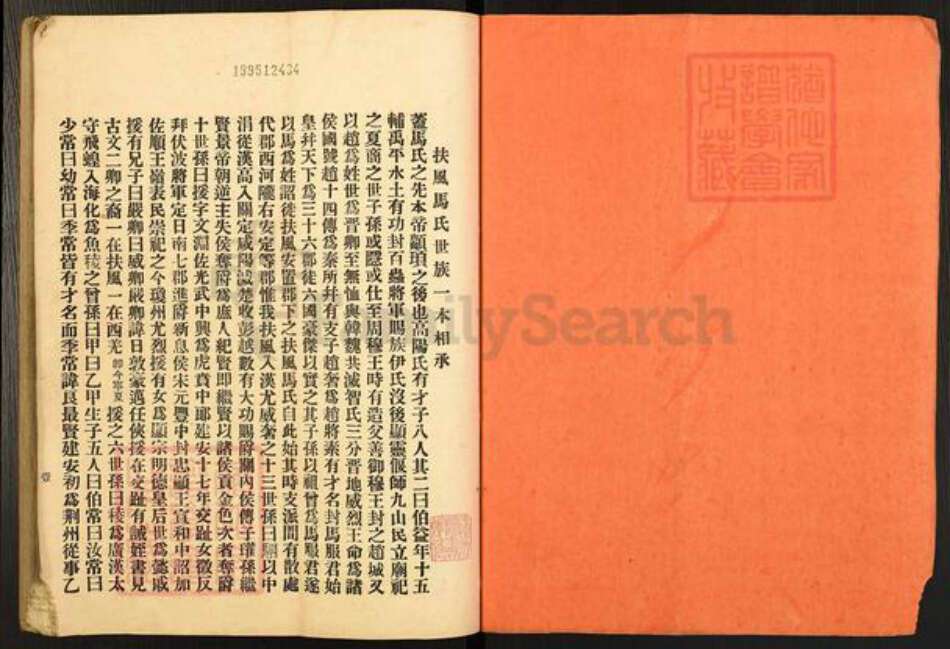 199512434
扶風馬氏世族一本相承
蓋馬氏之先本帝顓頊之後也高陽氏有才子八人其二曰伯益年十五
輔禹平水土有功封百蟲將軍賜族伊氏沒後顯靈偃師九山民立廟祀
之夏商之世子孫或隱或仕至周穆王時有造父善御穆王封之趙城又
以趙爲姓世爲晉卿至無恤與韓魏共滅智氏三分晉地威烈王命爲諸
侯國號趙十四傳爲秦所幷有支子趙奢爲趙將素有才名封馬服君始
皇幷天下爲三十六郡徒六國豪傑以實之其子孫以祖曾爲馬服君遂
以馬爲姓詔徒扶風安置郡下之扶風馬氏自此始其時支派間有散處
代郡西河隴右安定等郡惟我扶風入漢尤威奢之十三世孫曰 以中
涓從漢高入關定咸陽滅楚收彭越數有大功賜爵關內侯傳子瓘孫繼
賢景帝朝逆主失侯奪爵爲庶人紀賢即繼賢以諸侯貢金色次者奪爵
十世孫曰援字文淵佐光武中興爲虎賁中郎建安十七年交趾女徵反
拜伏波將軍定日南七郡進爵新息侯宋元豐中封忠顯王宣和中詔加
佐順王嶺表民崇祀之今瓊州尤烈援有女爲顯宗明德皇后世爲懿戚
援有兄子曰嚴卿曰威卿嚴卿諱日敦豪邁任俠援在交趾有誡姪書見
古文二卿之裔一在扶風一在西羌 卽今寧夏 援之六世孫曰稜爲廣漢太
守飛蝗入海化爲魚稜之曾孫曰甲曰乙甲生子五人曰伯常曰汝常曰
少常曰幼常曰季常皆有才名而季常諱良最賢建安初爲荆州從事乙
壹
FamilySearch
譜學會
收藏